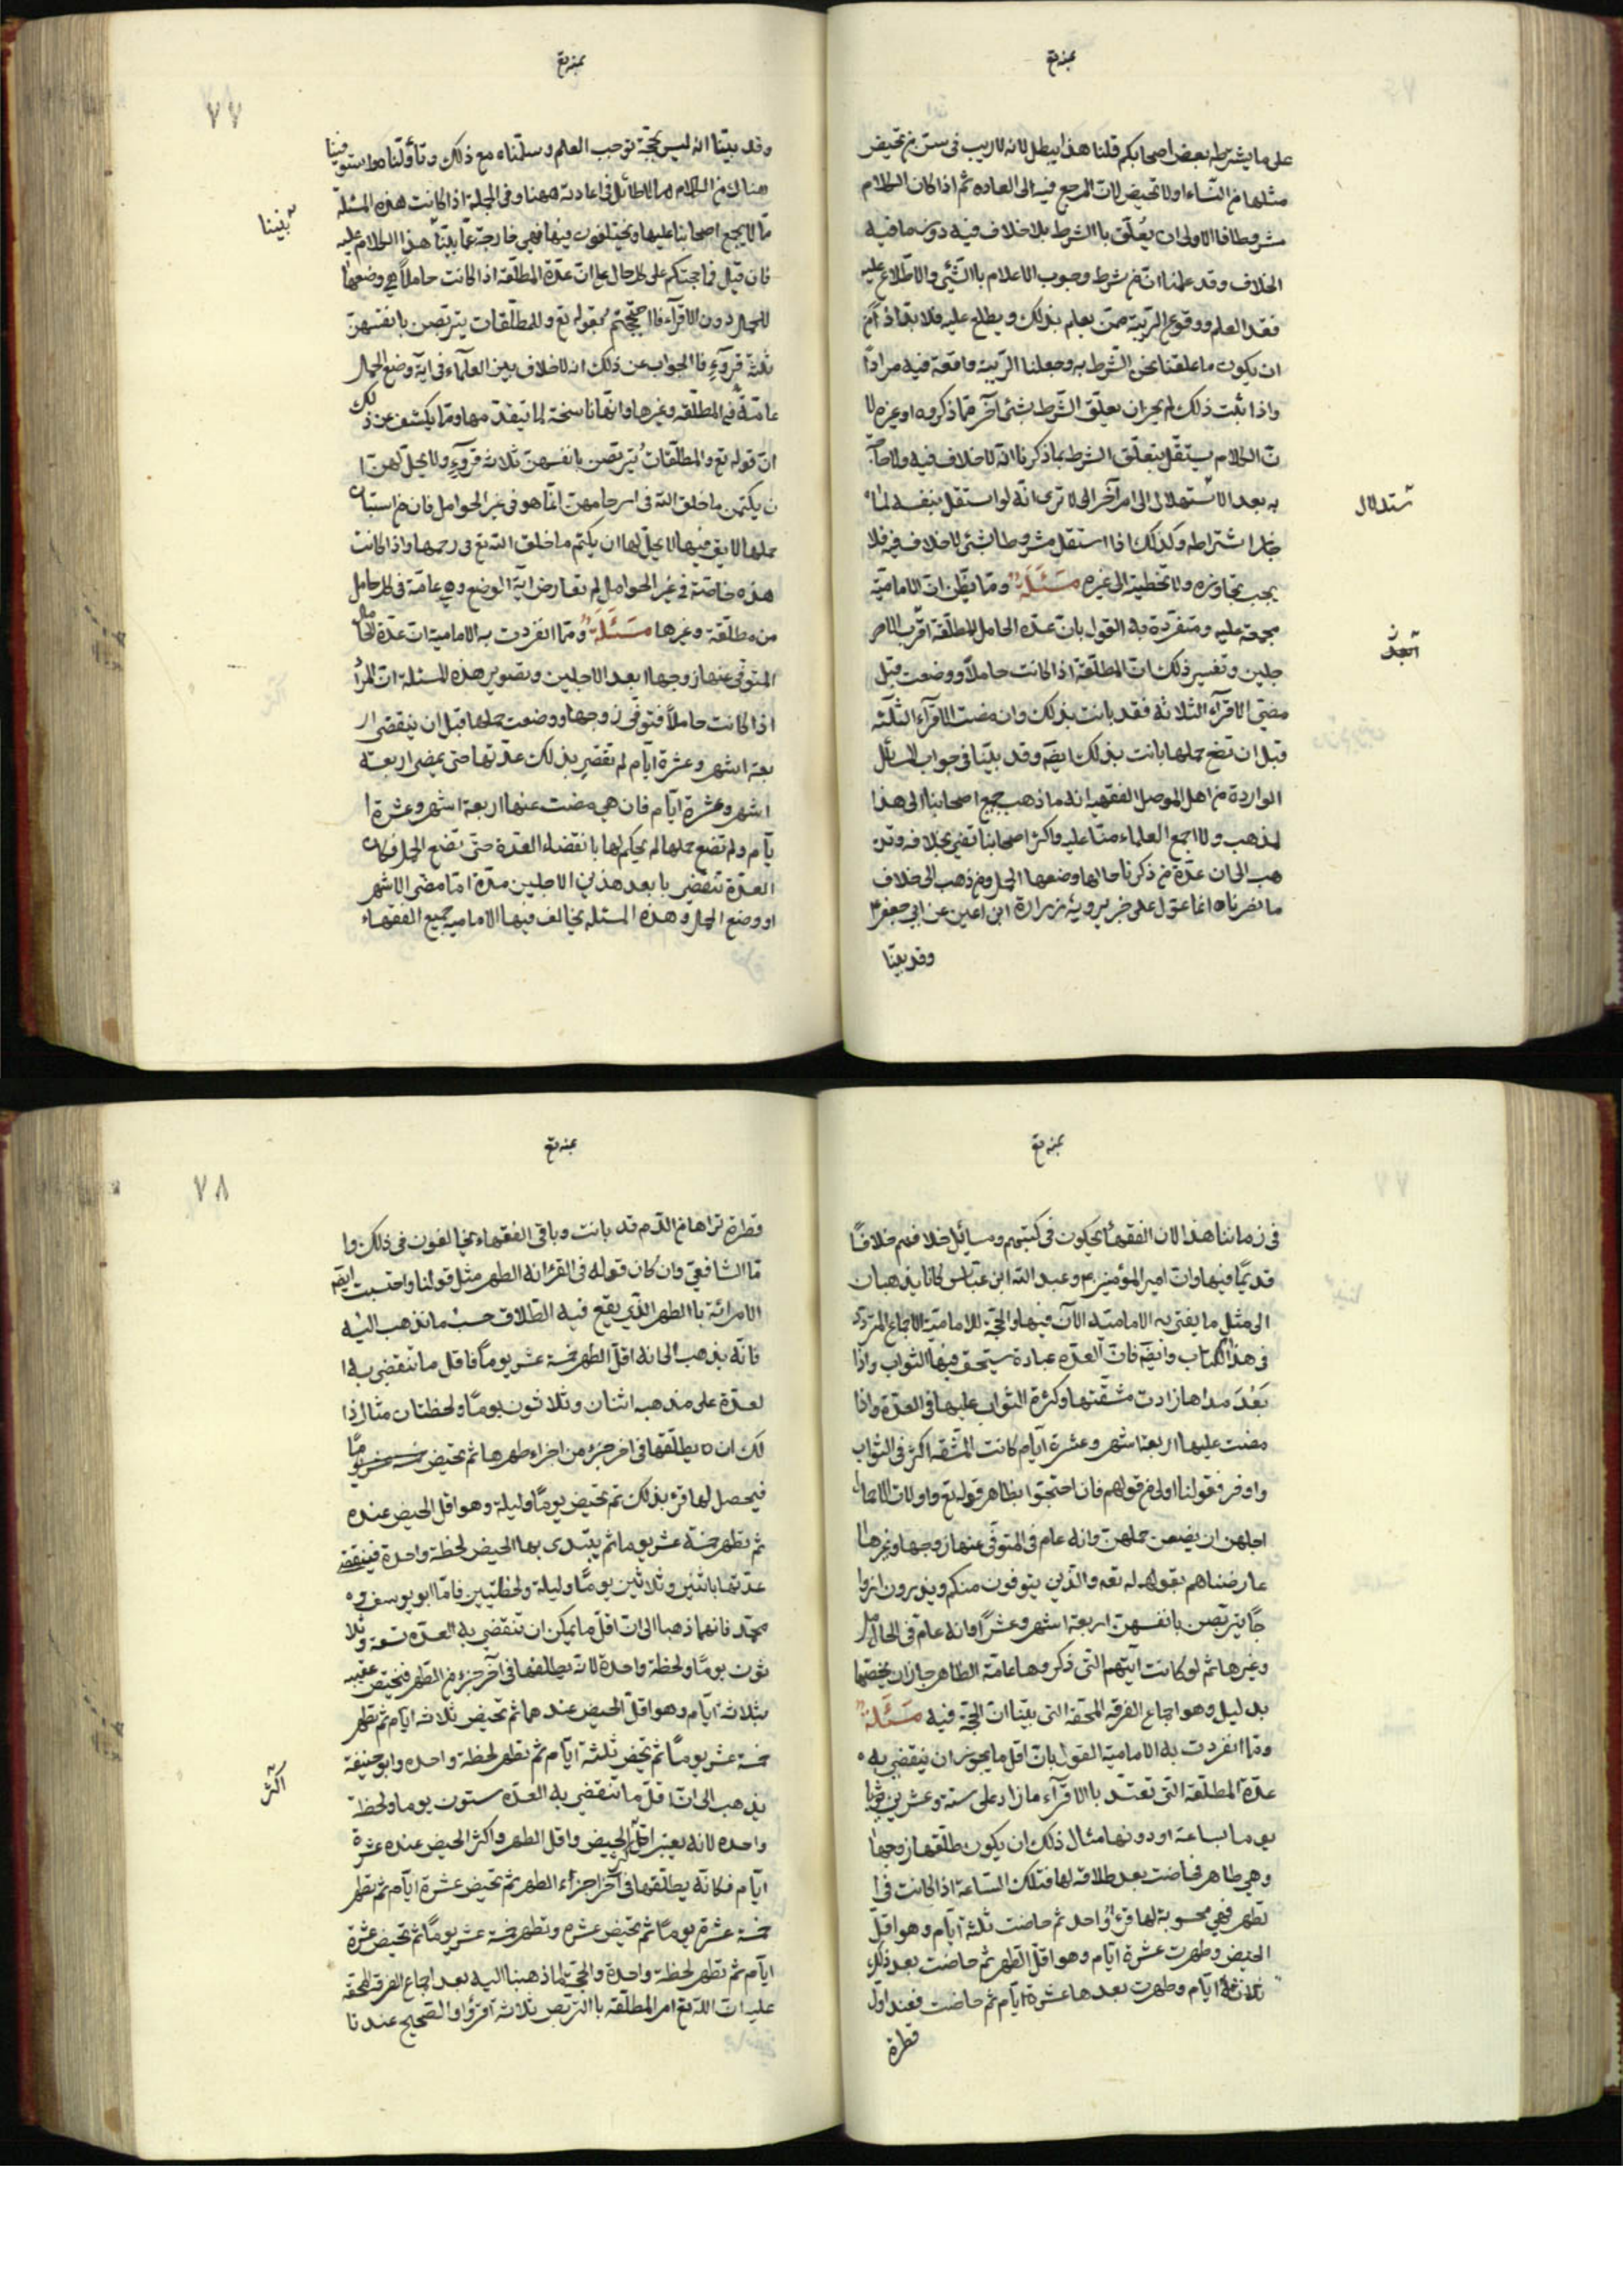 على ما يشرطه بعض اصحابكم قلنا هذا يبطل لانه لا ريب فى سن من تحيض
مثلها من النساء او لا تحيض لان المرجع فيه الى العاده ثم اذا كان الكلام
مشروطا فالاولى ان يعلّق با الشرط بلا خلاف فيه دون ما فيه
الخلاف وقد علمنا انّ من شرط وجوب الاعلام با الشئ والاطّلاع عليه
فقد العلم ووقوع الريبة ممن يعلم بذلك ويطلع عليه فلا بدّ اذ اً من
ان يكون ما علقنا نحن الشرط به وجعلنا الريبة واقعة فيه مراداً
واذا ثبت ذلك لم يجز ان يعلّق الشرط بشئ آخر ممّا ذكروه او غيره لا
نّ الكلام يستقل بتعلّق الشرط بما ذكرنا انه لا خلاف فيه ولا حاجة
به بعد الاشتهلال الى امر آخر الا ترى انّه لو استقل بنفسه لما
جاز اشتراطه وكذلك اذا استقل مشروطا بشئ لا خلاف فيه فلا
يجب تجاوزه ولا تخطيه الى غيره مَسَئَلَة وممّا يظّن انّ الامامية
مجمعة عليه ومنفردة به القول بانّ عدّه الحامل المطلّقة اقرب الا
جلين وتفسير ذلك انّ المطلّقة اذا كانت حاملاً ووضعت قبل
مضىّ الاقرآء الثلاثة فقد بانت بذلك وان مضت الاقرآء الثلثة
قبل ان تضع حملها بانت بذلك ايضَ وقد بيّنا فى جواب المسائل
الواردة من اهل الموصل الفقهيه انه ما ذهب جميع اصحابنا الى هذا
لمذهب ولا اجمع العلماء منّا عليه واكثر اصحابنا تفتى بخلافه وتذ
هب الى ان عدّة من ذكرنا حالها وضعها الحمل ومن ذهب الى خلاف
ما نصرناه انما عوّل على خبر يرويه زرارة ابن اعين عن ابى جعفر ع
وقد بيّنا
ستدلال
٧٧
وقد بيّنا انه ليس بحجّة توجب العلم وسلّمناه مع ذلك وتأوّلناه واستوفينا
هناك من الكلام ما لا طائل فى اعادته ههنا وفى الجملة اذا كانت هذه المسئلة
ممّا لا يجمع اصحابنا عليها ويختلفون فيها فهى خارجة عمّا بيّنا هذا الكلام عليه
فان قيل فما حجتكم على كل حال على انّ عدّة المطلّقة اذا كانت حاملاً هى وضعها
للحمل دون الاقرآء فا احتججتم بقوله تع والمطلّقات يتربّصن بانفسهنّ
ثلثة قروء فا الجواب عن ذلك انه لا خلاف بين العلمآء فى اية وضع الحمل
عامّة فى المطلّقه وغيرها وانّها ناسخة لما تقدّمها وممّا يكشف عن ذلك
انّ قوله تع والمطلّقات يتربّصن بانفسهنّ ثلاثة قروء ولا يحل لهنّ ا
ن يكتمن ما خلق الله فى ارحامهنّ انما هو فى غير الحوامل فان من استبان
حملها لا يق فيها لا يحل لها ان يكتم ما خلق الله تع فى رحمها واذا كانت
هذه خاصّة فى غير الحوامل لم تعارض اية الوضع وهى عامّة فى كل حامل
من مطلّقة وغيرها مَسَئَلَة وممّا انفردت به الامامية انّ عدّة الحامل
المتوفّى عنها زوجها ابعد الاجلين وتصوير هذه المسئلة انّ المرأ
اذا كانت حاملاً فتوفّى زوجها ووضعت حملها قبل ان ينقضى ار
بعة اشهر وعشرة ايّام لم تنقضِ بذلك عدّتها حتى يمضى اربعة
اشهر وعشرة ايّام فان هى مضت عنها اربعة اشهر وعشرة ا
يّام ولم تضع حملها لم يحكم لها بانقضاء العدّة حتى تضع الحمل فكان
العدّة تنقضى با بعد هذين الاجلين مدّة امّا مضى الاشهر
او وضع الحمل وهذه المسئله يخالف فيها الاماميه جميع الفقهاء
بيننا
فى زماننا هذا الان الفقهآء يحكون فى كتبهم ومسائل خلافهم خلافاً
قديمًا فيها وانّ امير المؤمنين ع وعبد الله ابن عبّاس كانا يذهبان
الى مثل ما يفتى به الاماميّه الآن فيها والحجّة للامامية الاجماع المتردّد
فى هذا الكتاب وايضَ فانّ العدّه عبادة يستحق فيها الثواب واذا
بَعُدَ مداها زادت مشقّتها وكثرة الثواب عليها فى العدّة واذا
مضت عليها اربعة اشهر وعشرة ايّام كانت المشقّه اكثر فى الثواب
واوفر فقولنا اولى من قولهم فان احتجّوا بظاهر قوله تع واولات الاحمال
اجلهن ان يضعن حملهنّ وانه عام فى المتوفّى عنها زوجها وغيرها
عارضناهم بقوله تع والذين يتوفون منكم ويذرون ازوا
جاً يتربّصن بانفسهنّ اربعة اشهر وعشراً وانه عام فى الحامل
وغيرها ثم لو كانت ايتهم التى ذكروها عامّة الظاهر جاز ان يخصّها
بدليل وهو اجماع الفرقه المحقه التى بيّنا انّ الحجّة فيه مَسَئَلَة
وممّا انفردت به الامامية القول بانّ اقل ما يجوز ان ينقضى به
عدّة المطلّقة التى تعتدّ با الاقرآء ما زاد على ستة وعشرين
يوما بساعة او دونها مثال ذلك ان يكون طلّقها زوجها
وهى طاهر فحاضت بعد طلاقه لها فتلك السّاعة اذا كانت فى ا
تطهر فهى محسوبة لها قرء واحد ثم حاضت ثلثة ايّام وهو اقلّ
الحيض وطهرت عشرة ايّام وهو اقلّ الطهر ثم حاضت بعد ذلك
ثلاثة ايّام وطهرت بعدها عشرة ايّام ثم حاضت فعند اوّل
قطرة
٧٨
قطرة تراها من الدّم قد بانت وباقى الفقهاء يخالفون فى ذلك وا
مّا الشافعىّ وان كان قوله فى القرء انه الطهر مثل قولنا واحتسبت ايضَ
الامرائة با الطهر الذى يقع فيه الطلاق حسب ما نذهب اليه
فانّه يذهب الى انه اقلّ الطهر خمسة عشر يوماً فاقل ما تنقضى به ا
لعدّة على مذهبه اثنان وثلاثون يومًا ولحظتان مثال ذا
لك انه يطلّقها فى اخر جزء من اجزاء طهرها ثم تحيض
فيحصل لها قرء بذلك ثم تحيض يومًا وليلة وهو اقل الحيض عنده
ثم تطهر خمسة عشر يوما ثم يبتدى بها الحيض لحظة واحدة فينقضى
عدّتها باثنين وثلاثين يومًا وليلة ولحظتين فامّا ابو يوسف و
محمّد فانهما ذهبا الى انّ اقلّ ما يمكن ان تنقضى به العدّه تسعة وثلا
ثون يومًا ولحظة واحدة لانّه يطلقها فى آخر جزء من الطهر فتحيض عقيبه
بثلاثة ايّام وهو اقلّ الحيض عندهما ثم تحيض ثلاثة ايّام ثم تطهر
خمسة عشر يومًا ثم تحض ثلثة ايّام ثم تطهر لحظة واحده وابو حنيفة
يذهب الى انّ اقلّ ما تنقضى به العدّه ستون يوما ولحظة
واحده لانه يعتبر اقلّ الحيض واقل الطهر واكثر الحيض عنده عشرة
ايّام فكانّه يطلّقها فى آخر اجزاء الطهر ثم تحيض عشرة ايّام ثم تطهر
خمسة عشرة يومًا ثم تحيض عشره وتطهر خمسة عشر يومًا ثم تحيض عشرة
ايّام ثم تطهر لحظة واحدة والحجّة لما ذهبنا اليه بعد اجماع الفرقه المحقّه
عليه انّ الله تع امر المطلّقه با التربّص ثلاثة اقرؤ والصّحيح عندنا
اكثر